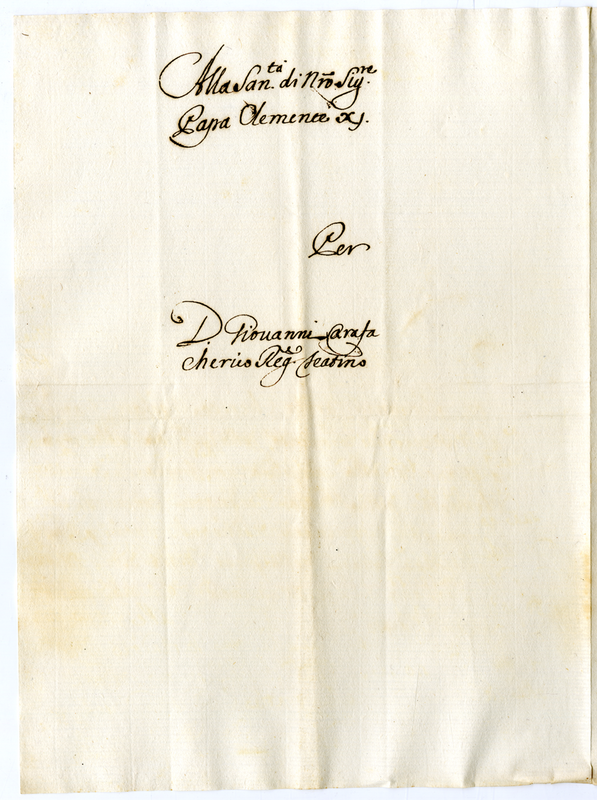 Alla San.tà di Nrõ Sig.re
Papa Clemente XJ.
Per
D. Giovanni Carafa
Cherico Reg.e Teatino